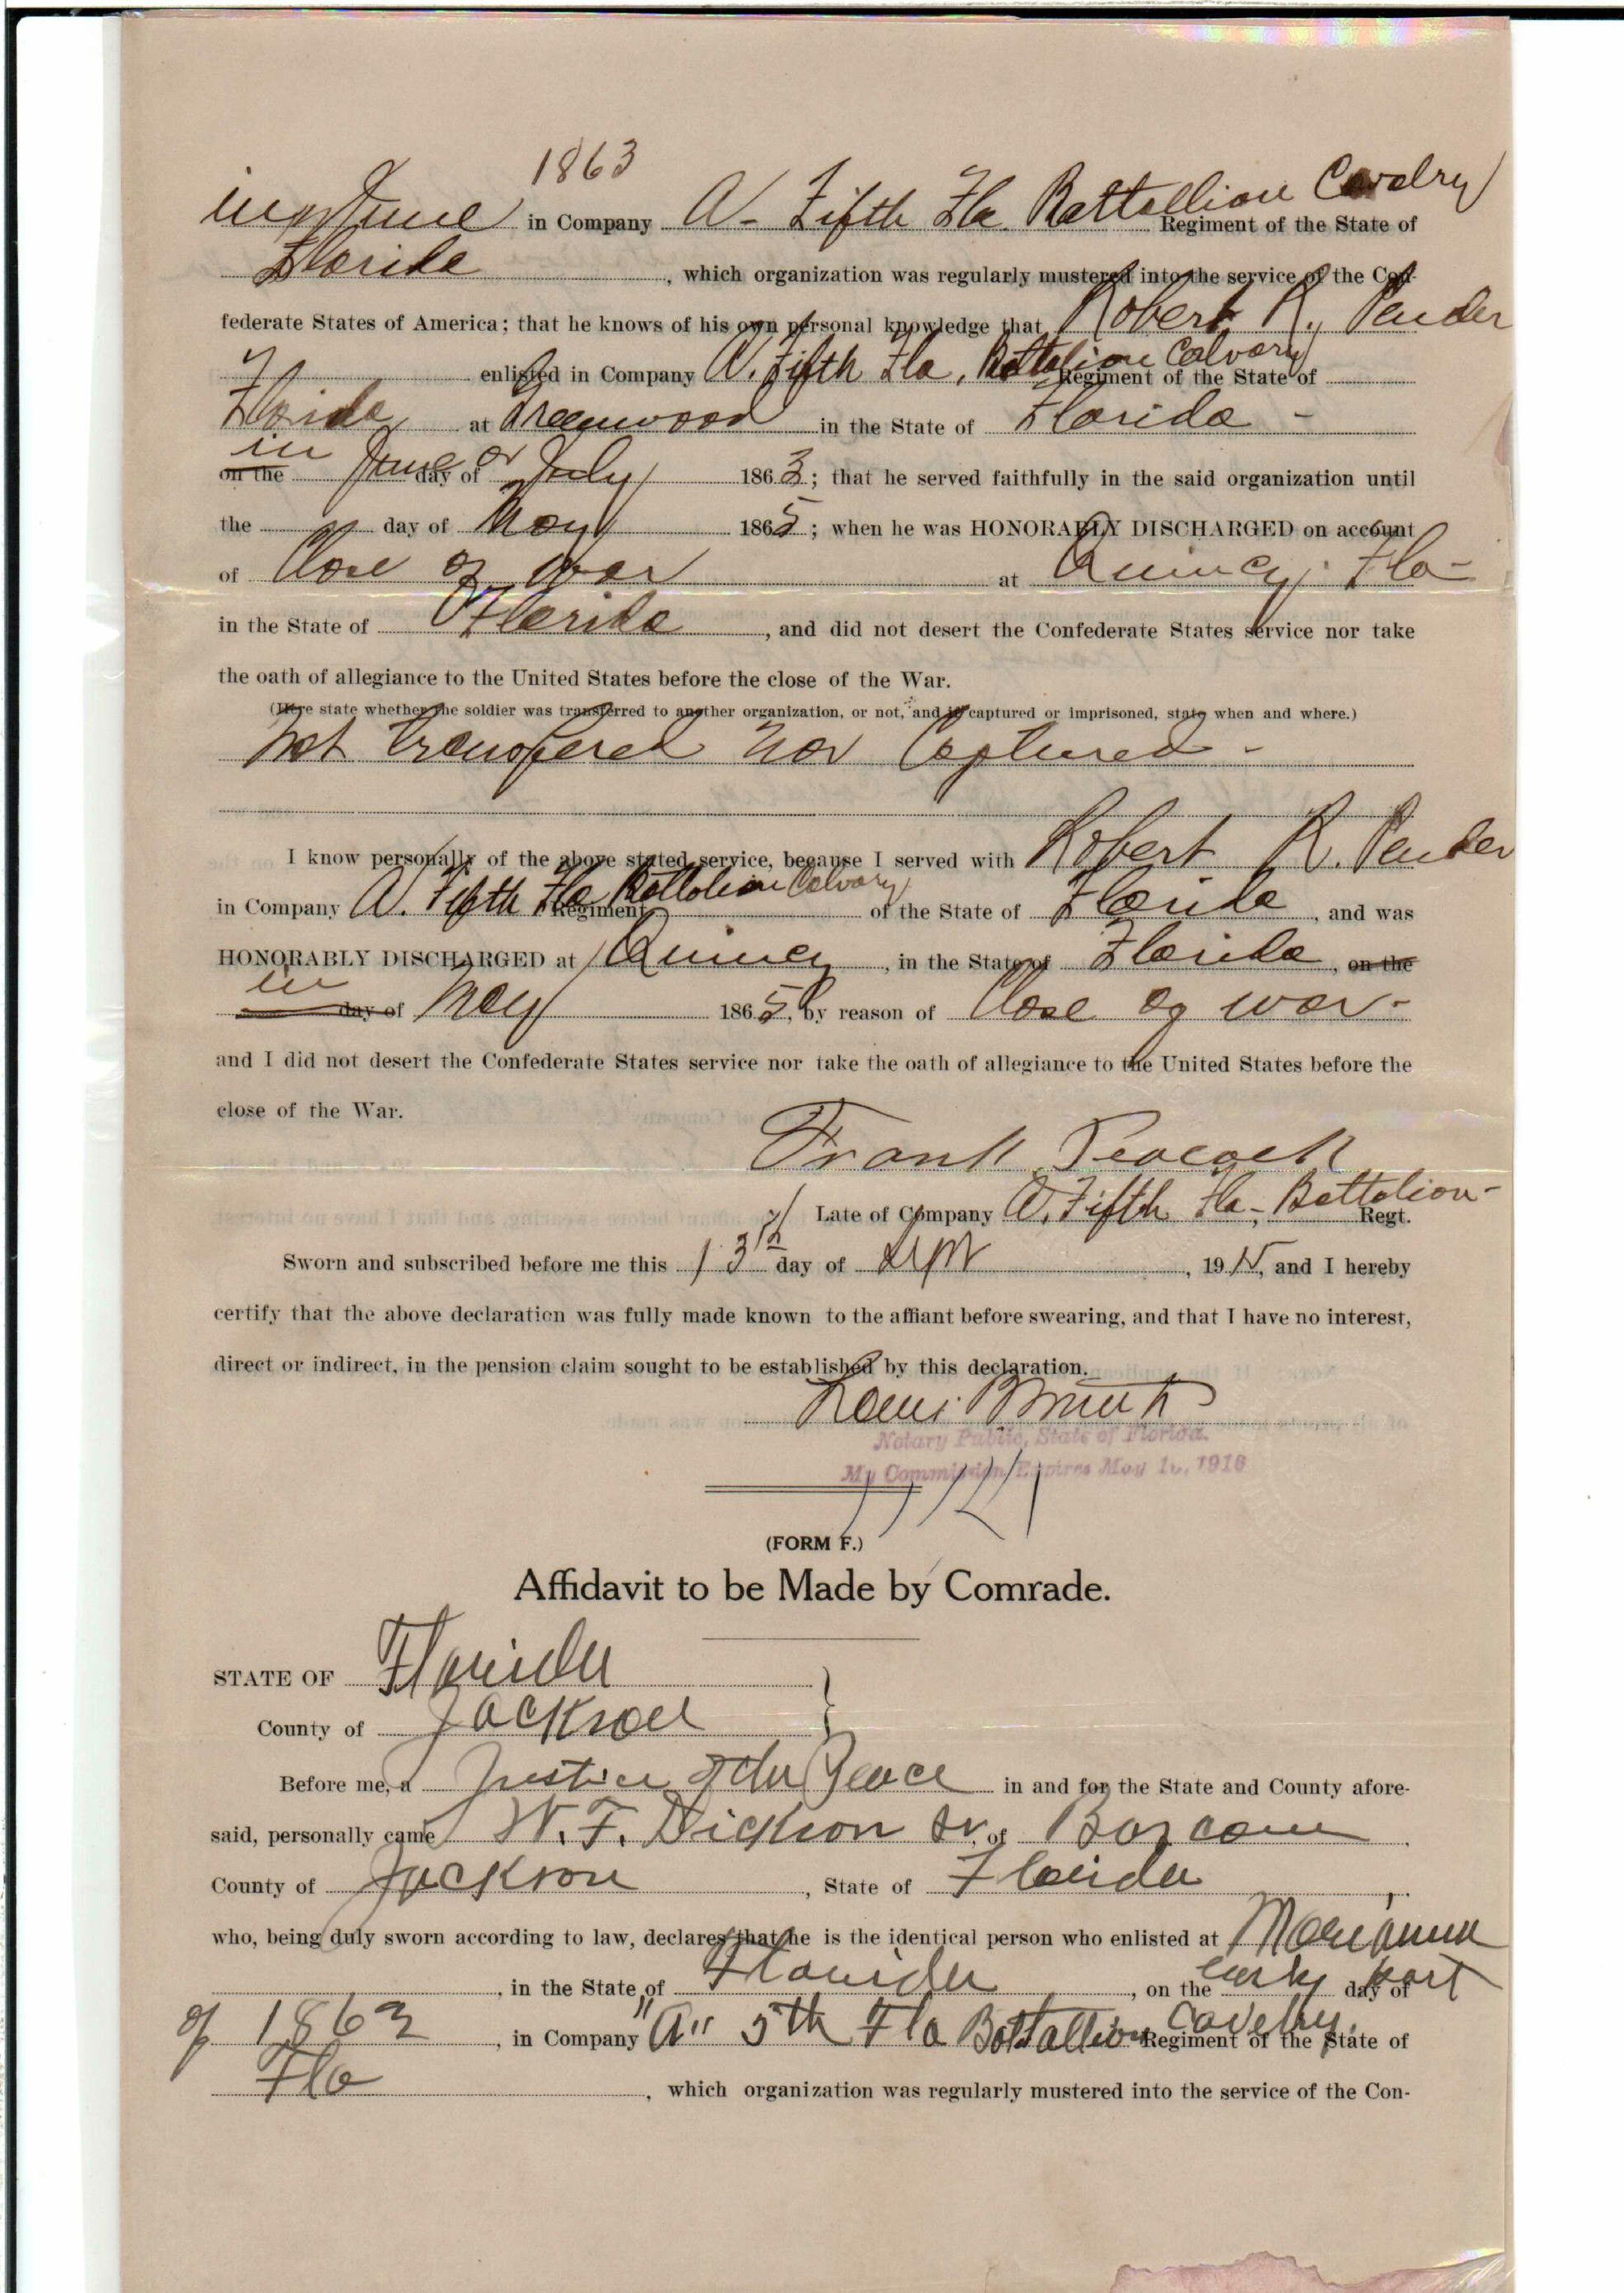 1863
in June in Company A - Fifth Fla Battallion Cavalry Regiment of the State of
Florida, which organization was regularly mustered into the service of the Con-
federate States of America; that he knows of his own personal knowledge that Robert R. Pender
enlisted in Company A. Fifth Fla. Battalion Calvary Regiment of the State of
Florida at Greenwood in the State of Florida -
in
on the June or day of July 1863; that he served faithfully in the said organization until
the day of May 1865; when he was HONORABLY DISCHARGED on account
of Close of War at Quincy, Fla -
in the State of Florida, and did not desert the Confederate States service nor take
the oath of allegiance to the United States before the close of the War.
(Here state whether the soldier was transferred to another organization, or not, and if captured or imprisoned, state when and where.)
Not transfered nor Captured -
I know personally of the above stated service, because I served with Robert R. Pender
in Company A. Fifth Fla Battalion Calvary Regiment of the State of Florida, and was
HONORABLY DISCHARGED at Quincy, in the State of Florida, on the
in
day of May 1865, by reason of Close of war -
and I did not desert the Confederate States service nor take the oath of allegiance to the United States before the
close of the War.
Frank Peacock
Late of Company A. Fifth Fla. Battalion - Regt.
Sworn and subscribed before me this 13th day of , 19 , and I hereby
certify that the above declaration was fully made known to the affiant before swearing, and that I have no interest,
direct or indirect, in the pension claim sought to be established by this declaration.
Notary Public, State of Florida.
My Commission Expires May 1 , 1916
(FORM F.)
Affidavit to be Made by Comrade.
STATE OF Florida
County of Jackson }
Before me, a Justice of the Peace in and for the State and County afore-
said, personally came W. F. Dickson Sr. of Bascom
County of Jackson, State of Florida
who, being duly sworn according to law, declares that he is the identical person who enlisted at Marianna
, in the State of Florida, on the early part day of
of 1863, in Company "A" 5th Fla Battallion Cavelry. Regiment of the State of
Fla, which organization was regularly mustered into the service of the Con-